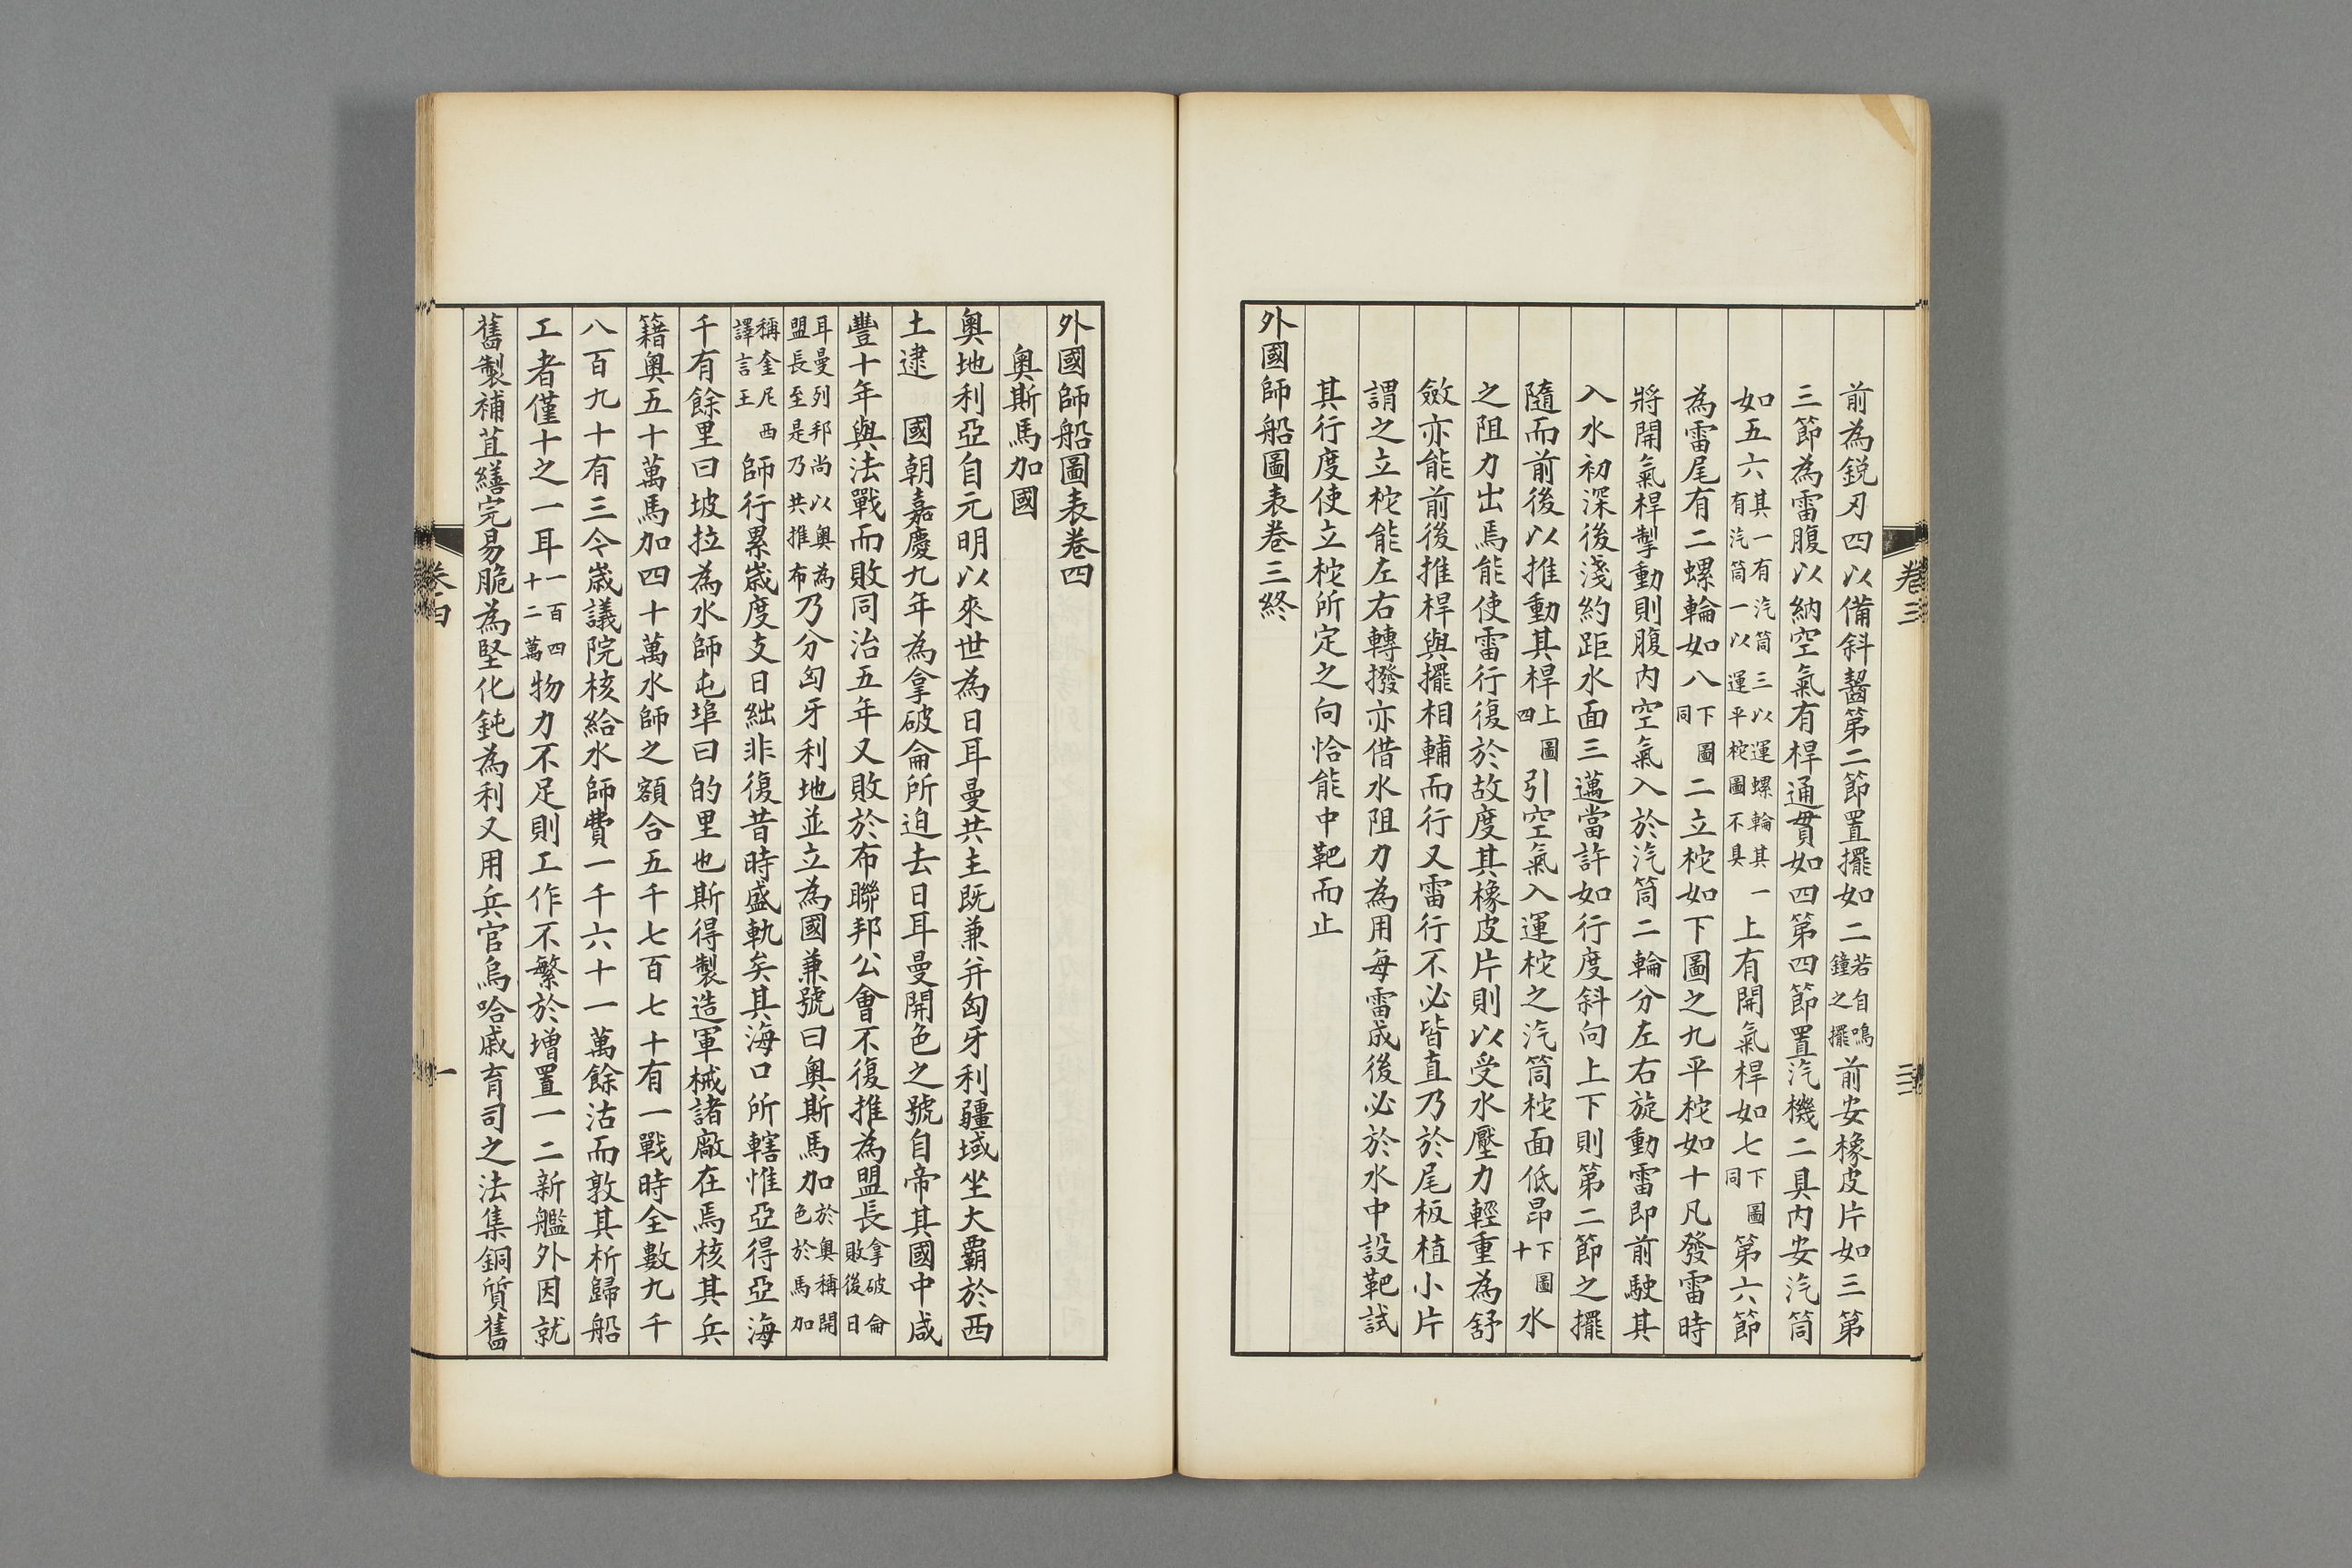 前為銳刃四以備斜齧第二節置擺如二若自鳴鐘之擺前安橡皮片如三第
三節為雷腹以納空氣有桿通貫如四第四節置汽機二具內安汽筒
如五六其一有汽筒三以運螺輪其一有汽筒一以運平柁圖不具上有開氣桿如七下圖同第六節
為雷尾有二螺輪如八下圖同二立柁如下圖之九平柁如十凡發雷時
將開氣桿掣動則腹內空氣入於汽筒二輪分左右旋動雷即前駛其
入水初深後淺約距水面三邁當許如行度斜向上下則第二節之擺
隨而前後以推動其桿上圖四引空氣入運柁之汽筒柁面低昂下圖十水
之阻力出焉能使雷行復於故度其橡皮片則以受水壓力輕重為舒
斂亦能前後推桿與擺相輔而行又雷行不必皆直乃於尾板植小片
謂之立柁能左右轉撥亦借水阻力為用每雷成後必於水中設靶試
其行度使立柁所定之向恰能中靶而止
外國師船圖表卷三終
卷三
外國師船圖表卷四
奧斯馬加國
奧地利亞自元明以來世為日耳曼共主既兼并匈牙利疆域坐大霸於西
土逮　國朝嘉慶九年為拿破侖所迫去日耳曼開色之號自帝其國中咸
豐十年與法戰而敗同治五年又敗於布聯邦公會不復推為盟長拿破侖敗後日
耳曼列邦尚以奧為盟長至是乃共推布乃分匈牙利地並立為國兼號曰奧斯馬加於奧稱開色於馬加
稱奎尼西譯言王師行累歲度支日絀非復昔時盛軌矣其海口所轄惟亞得亞海
千有餘里曰坡拉為水師屯埠曰的里也斯得製造軍械諸廠在焉核其兵
籍奧五十萬馬加四十萬水師之額合五千七百七十有一戰時全數九千
八百九十有三今歲議院核給水師費一千六十一萬餘沽而敦其析歸船
工者僅十之一耳一百四十二萬物力不足則工作不繁於增置一二新艦外因就
舊製補苴繕完易脆為堅化鈍為利又用兵官烏哈戚育司之法集銅質舊
卷四
一